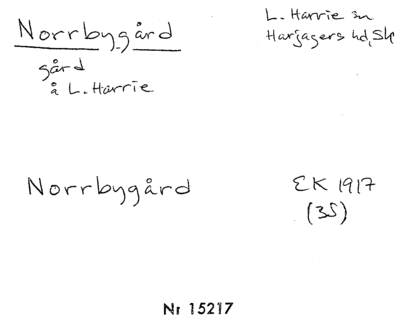 Norrbygård
L. Harrie sn
Harjagers hd, Sk
gård
å L. Harrie
Norrbygård
EK 1917
(35)
Nr 15217